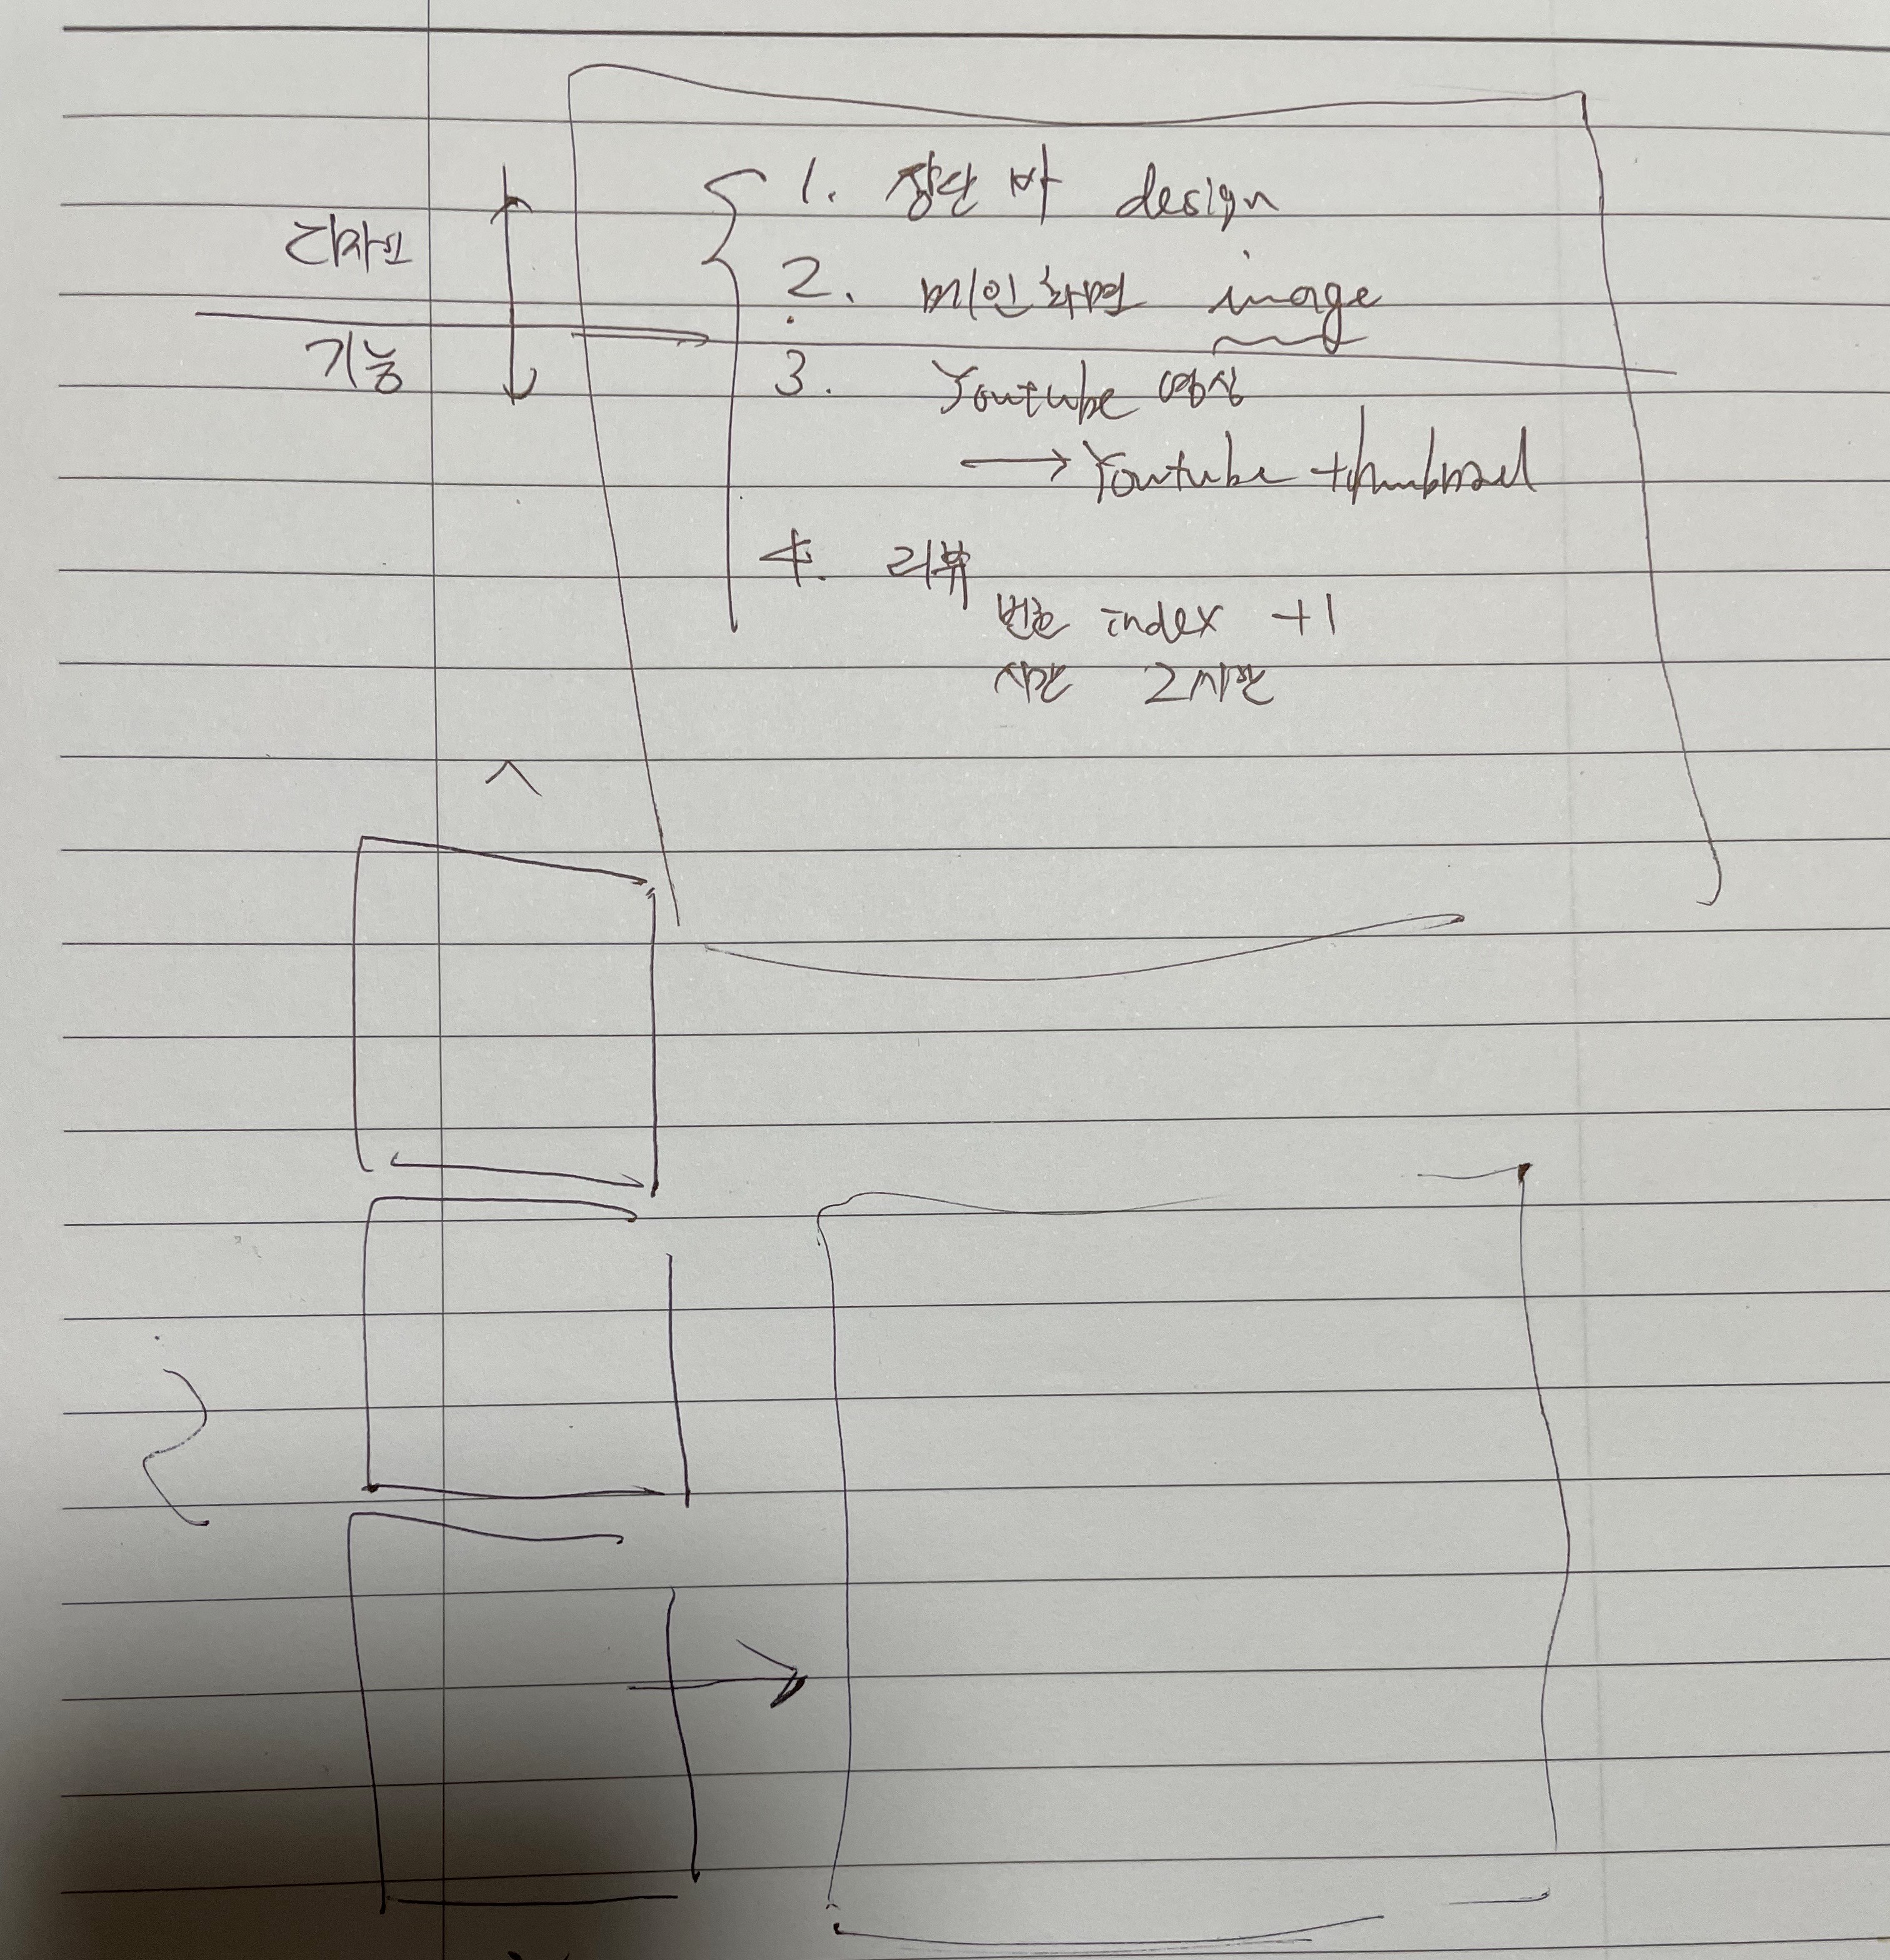 디자인
기능
1. 상단 바 design
2. 메인화면 image
3. Youtube 영상
→ Youtube thumbnail
4. 리뷰
번호 index +1
시간 2시간